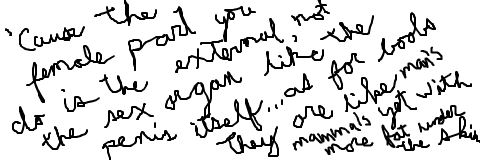 'Cause the
female part you
do is the external, not
the sex organ like the
penis itself... as for boobs
They are like man's
mamma's yet with
more fat under
the skin